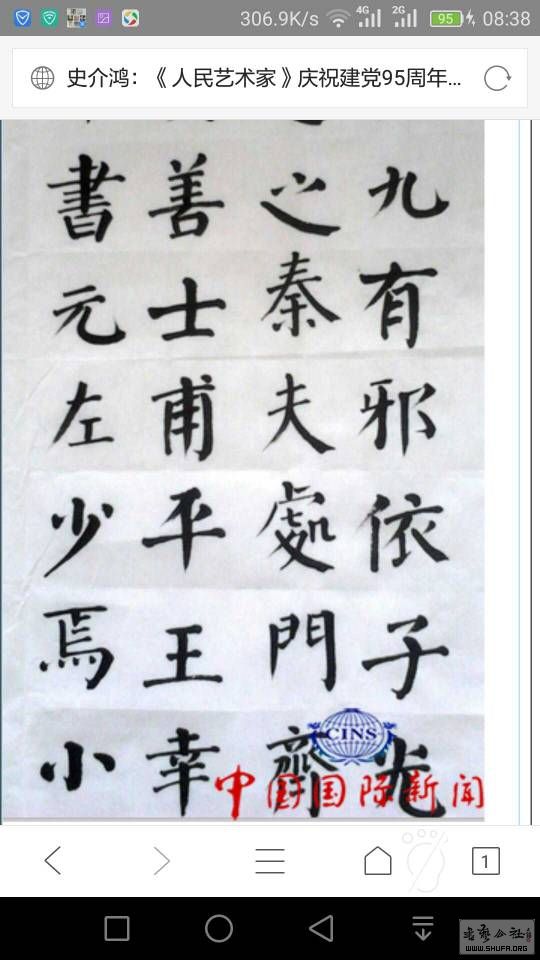 306.9K/s 4G 2G 95 08:38
史介鸿：《人民艺术家》庆祝建党95周年...
九有邪依子光
之秦夫處門齋
善士甫平王幸
書元左少焉小
CINS
中国国际新闻
1
WWW.SHUFA.ORG